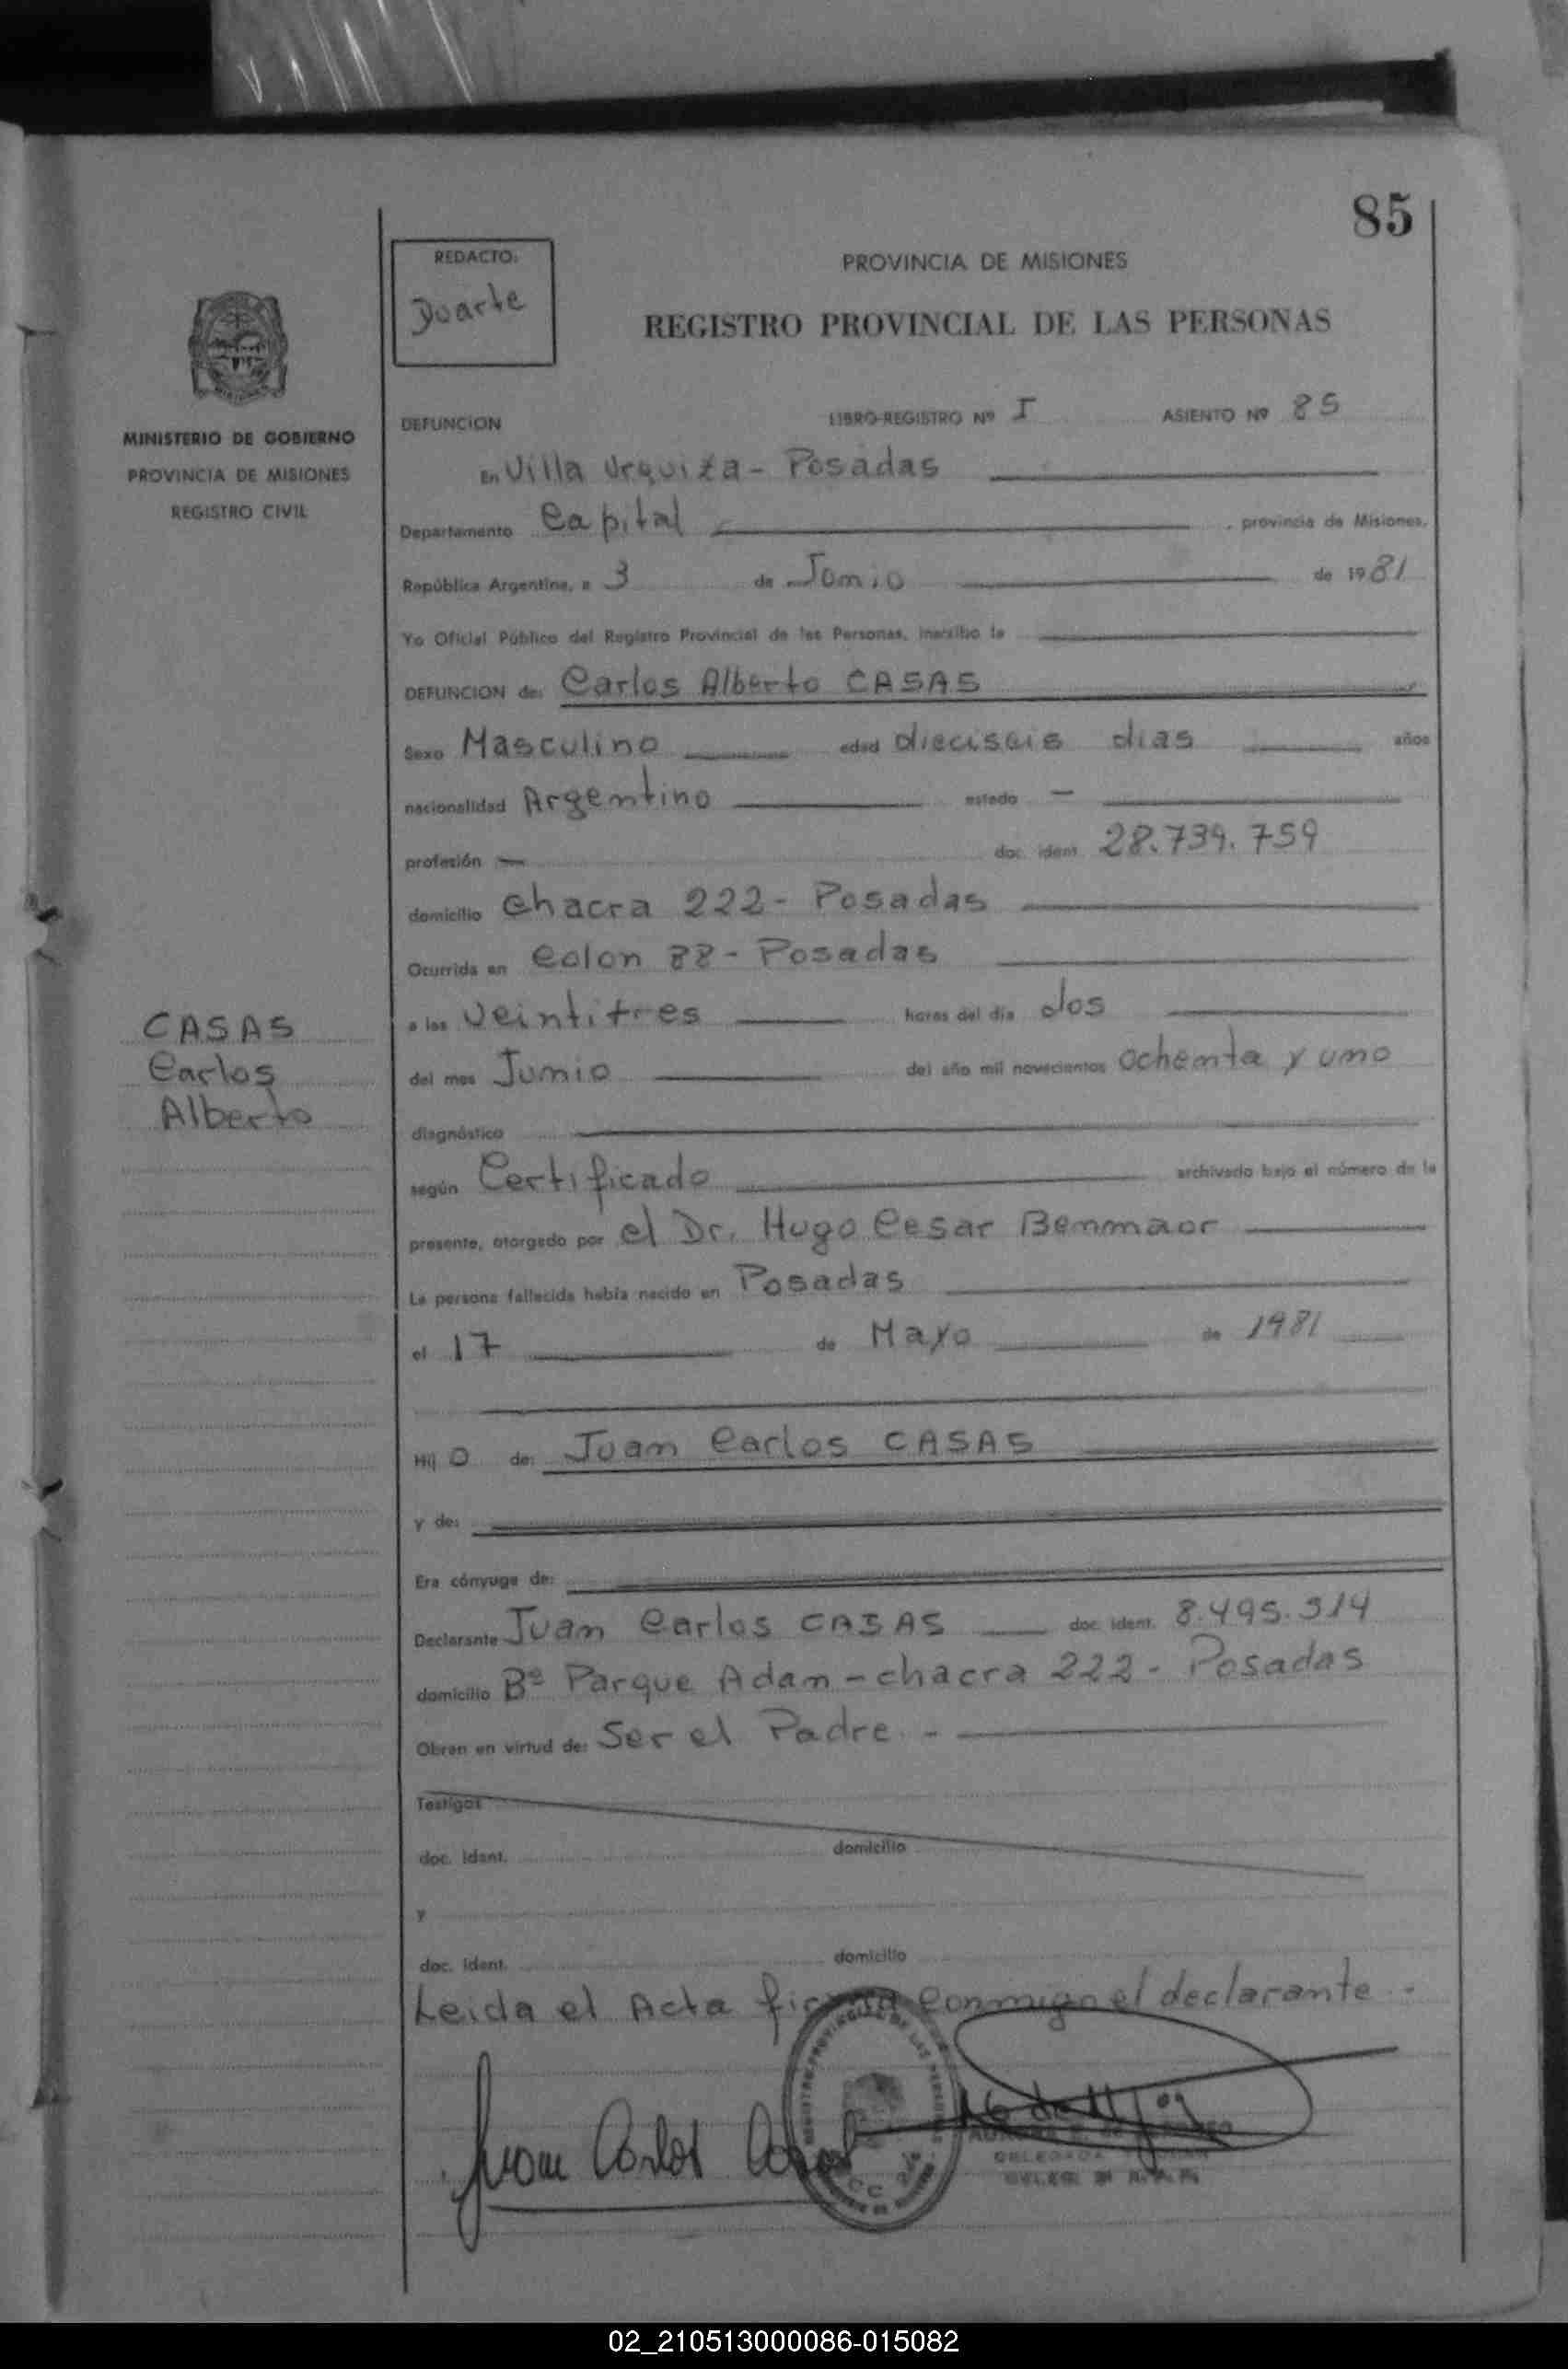 85
REDACTO:
Duarte
PROVINCIA DE MISIONES
REGISTRO PROVINCIAL DE LAS PERSONAS
MINISTERIO DE GOBIERNO
PROVINCIA DE MISIONES
REGISTRO CIVIL
DEFUNCION LIBRO-REGISTRO Nº I ASIENTO Nº 85
En Villa Urquiza - Posadas
Departamento Capital , provincia de Misiones,
República Argentina, a 3 de Junio de 1981
Yo Oficial Público del Registro Provincial de las Personas, inscribo la
DEFUNCION de: Carlos Alberto CASAS
Sexo Masculino edad dieciseis dias años
nacionalidad Argentino estado -
profesión - doc. ident. 28.739.759
domicilio Chacra 222 - Posadas
Ocurrida en Colon 88 - Posadas
a las Veintitres horas del día dos
del mes Junio del año mil novecientos Ochenta y uno
diagnóstico
según Certificado archivado bajo el número de la
presente, otorgado por el Dr. Hugo Cesar Benmaor
La persona fallecida había nacido en Posadas
el 17 de Mayo de 1981
Hij O de: Juan Carlos CASAS
y de:
Era cónyuge de:
Declarante Juan Carlos CASAS doc. ident. 8.495.514
domicilio Bº Parque Adam - chacra 222 - Posadas
Obran en virtud de: Ser el Padre. -
Testigos
doc. ident. domicilio
y
doc. ident. domicilio
Leida el Acta firma conmigo el declarante. -
Juan Carlos Casas
CASAS
Carlos
Alberto
02_210513000086-015082